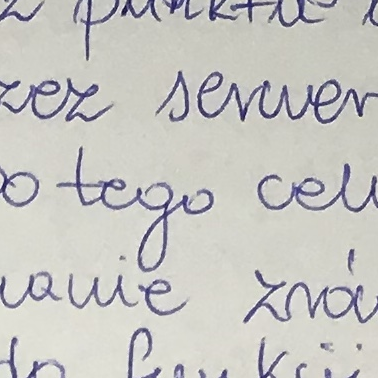 z punktu
zez serwer
o tego celu
wanie zró
do funkcji